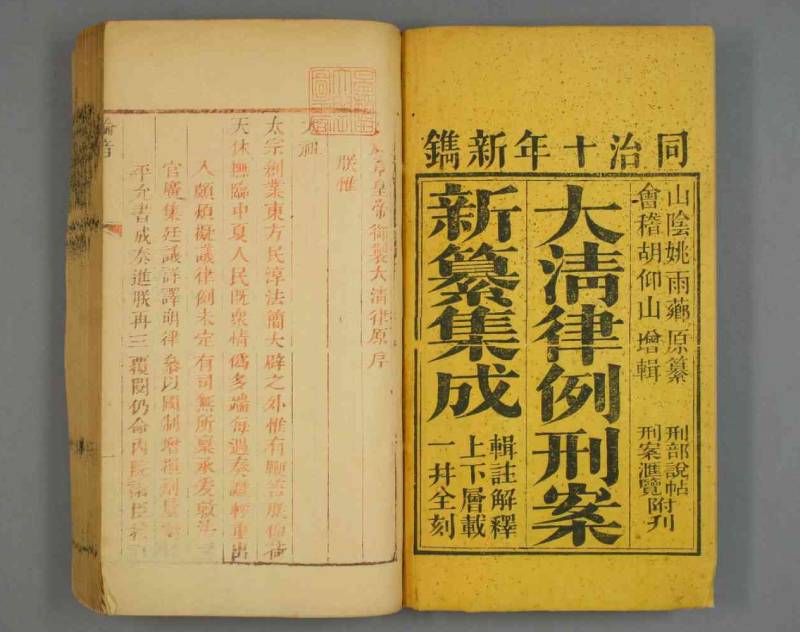 同治十年新鐫
山陰姚雨薌原纂
會稽胡仰山增輯
刑部說帖
刑案滙覽附刊
大清律例刑案
新纂集成
輯註解釋
上下層載
一并全刻
章皇帝御製大清律原序
朕惟
太祖
太宗創業東方民淳法簡大辟之外惟有鞭笞朕仰荷
天休撫臨中夏人民既眾情偽多端每遇奏讞輕重出
入頗煩擬議律例未定有司無所稟承爰敕法
官廣集廷議詳譯明律參以國制增損劑量
平允書成奏進朕再三覆閱仍命內院諸臣校訂
綸音